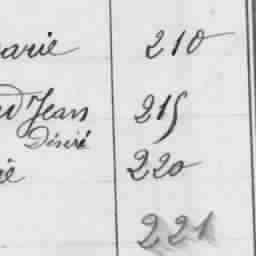 arie 210
Jean 215
Désiré
ie 220
221